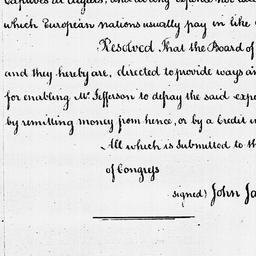 which European nations usually pay in like
Resolved That the Board of
and they hereby are, directed to provide ways an
for enabling Mr. Jefferson to defray the said expe
by remitting money from hence, or by a Credit in
All which is Submitted to th
of Congress
signed) John Ja